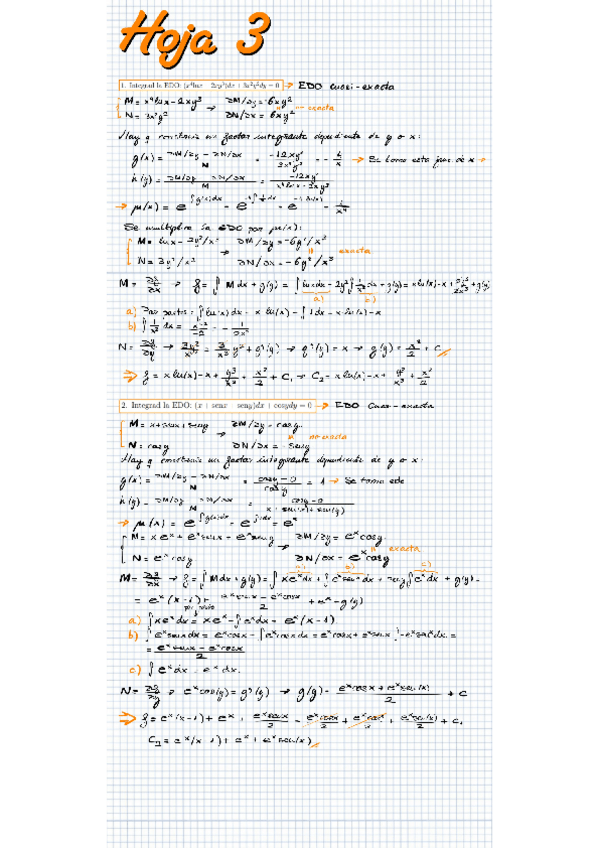 Hoja 3
1. Integrad la EDO: (x⁴lnx − 2xy³)dx + 3x²y²dy = 0 → EDO Cuasi-exacta
M = x⁴lnx − 2xy³ → ∂M/∂y = −6xy²
N = 3x²y² ∂N/∂x = 6xy² no exacta
Hay q construir un factor integrante dependiente de y o x:
g(x) = ∂M/∂y − ∂N/∂x / N = −12xy² / 3x²y² = −4/x → Se toma esta func. de x →
h(y) = ∂M/∂y − ∂N/∂x / M = −12xy² / x⁴lnx − 2xy³
→ μ(x) = e = e = e = 1/x⁴
Se multiplica la EDO por μ(x):
M = lnx − 2y³/x³ → ∂M/∂y = −6y²/x³
N = 3y²/x² ∂N/∂x = −6y²/x³ exacta
M = ∂f/∂x → f = ∫ M dx + g(y) = ∫ lnx dx − 2y³ ∫ 1/x³ dx + g(y) = x ln(x) − x + g(y)
a) b)
a) Por partes: ∫ ln(x) dx = x ln(x) − ∫ 1 dx = x ln(x) − x
b) ∫ 1/x³ dx = x⁻²/−2 = − 1/2x²
N = ∂f/∂y → = y² + g'(y) → g'(y) = x → g(y) = x²/2 + C
⇒ f = x ln(x) − x + y³/x² + x²/2 + C₁ → C₂ = x ln(x) − x + + x²/2
2. Integrad la EDO: (x + senx + seny)dx + cosydy = 0 → EDO Cuasi-exacta
M = x + senx + seny ∂M/∂y = cosy
→ no exacta
N = cosy ∂N/∂x = seny
Hay q construir un factor integrante dependiente de y o x:
g(x) = ∂M/∂y − ∂N/∂x / N = cosy − 0 / cosy = 1 → Se toma este
h(y) = ∂M/∂y − ∂N/∂x / M = cosy − 0 / x + sen(x) + sen(y)
→ μ(x) = e^∫g(x)dx = e^∫1dx = eˣ
M = xeˣ + eˣsenx + eˣseny → ∂M/∂y = eˣcosy
N = eˣcosy ∂N/∂x = eˣcosy exacta
a) b) c)
M = ∂f/∂x → f = ∫ M dx + g(y) = ∫ xeˣdx + ∫ eˣsenx dx + seny ∫ eˣdx + g(y) =
= eˣ(x−1) + eˣsenx − eˣcosx / 2 + eˣ + g(y)
a) ∫ xeˣdx = xeˣ − ∫ eˣdx = eˣ(x−1)
b) ∫ eˣsenx dx = eˣcosx − ∫ eˣcosx dx = eˣcosx + eˣsenx ∫ −eˣsenx dx =
= eˣsenx − eˣcosx / 2
c) ∫ eˣdx = eˣdx
N = ∂f/∂y → eˣcos(y) = g'(y) → g(y) = eˣcosx + eˣsen(x) / 2 + C
⇒ f = eˣ(x−1) + eˣ + eˣsenx/2 − eˣcosx/2 + eˣcosx/2 + eˣsen(x)/2 + C₁
C₂ = eˣ(x−1) + eˣ + eˣsen(x)